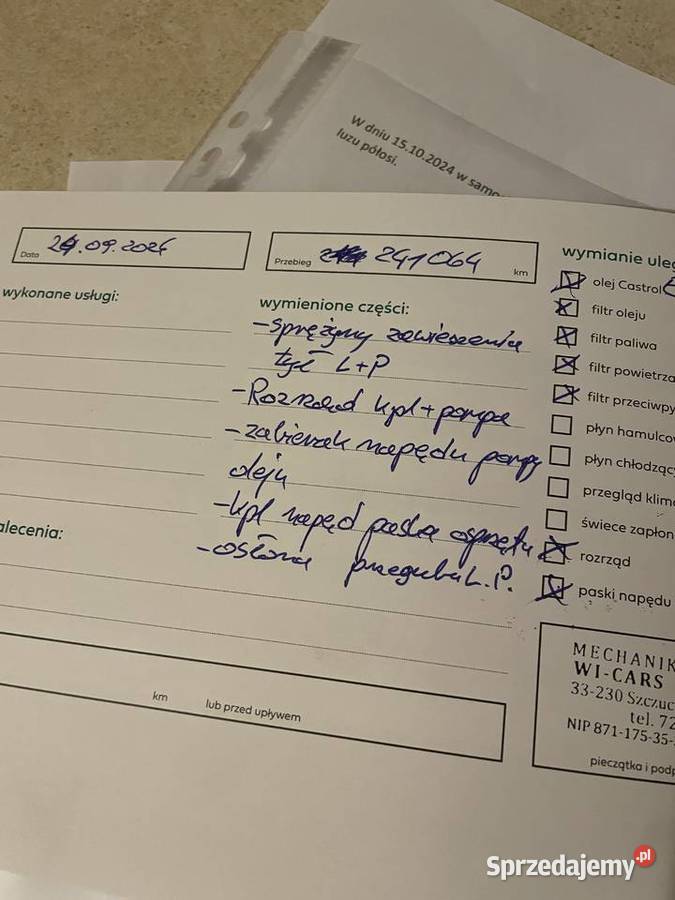 W dniu 15.10.2024 w samo
luzu półosi.
Data 24.09.2024
Przebieg 241064 km
wymianie uleg
wykonane usługi:
wymienione części:
- sprężyny zawieszenia
tył L+P
- Rozrząd kpl + pompa
- zabierak napędu pompy
oleju
- kpl napęd paska osprzętu
- osłona przegubu L.P.
olej Castrol
filtr oleju
filtr paliwa
filtr powietrza
filtr przeciwpy
płyn hamulcow
płyn chłodzący
przegląd klima
świece zapłon
rozrząd
paski napędu
alecenia:
km lub przed upływem
MECHANIK
WI-CARS
33-230 Szczuc
tel. 72
NIP 871-175-35-
pieczątka i podp
Sprzedajemy.pl